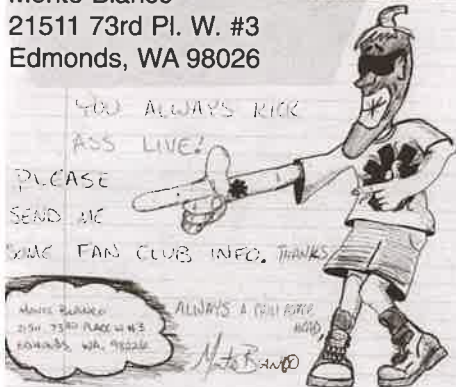 Monte Blanco
21511 73rd Pl. W. #3
Edmonds, WA 98026
YOU ALWAYS KICK
ASS LIVE!
PLEASE
SEND ME
SOME FAN CLUB INFO. THANKS
MONTE BLANCO
21511 73RD PLACE W #3
EDMONDS WA. 98026
ALWAYS A CHILI PEPPER
HEAD,
Monte BLANCO